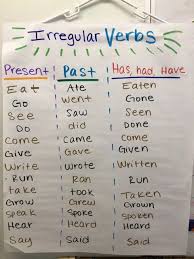 Irregular Verbs
Present Past Has, had, Have
Eat Ate Eaten
Go went Gone
See Saw Seen
Do did Done
Come came Come
Give Gave Given
Write Wrote Written
Run Ran Run
take took Taken
Grow Grew Grown
speak Spoke Spoken
Hear Heard Heard
Say Said Said